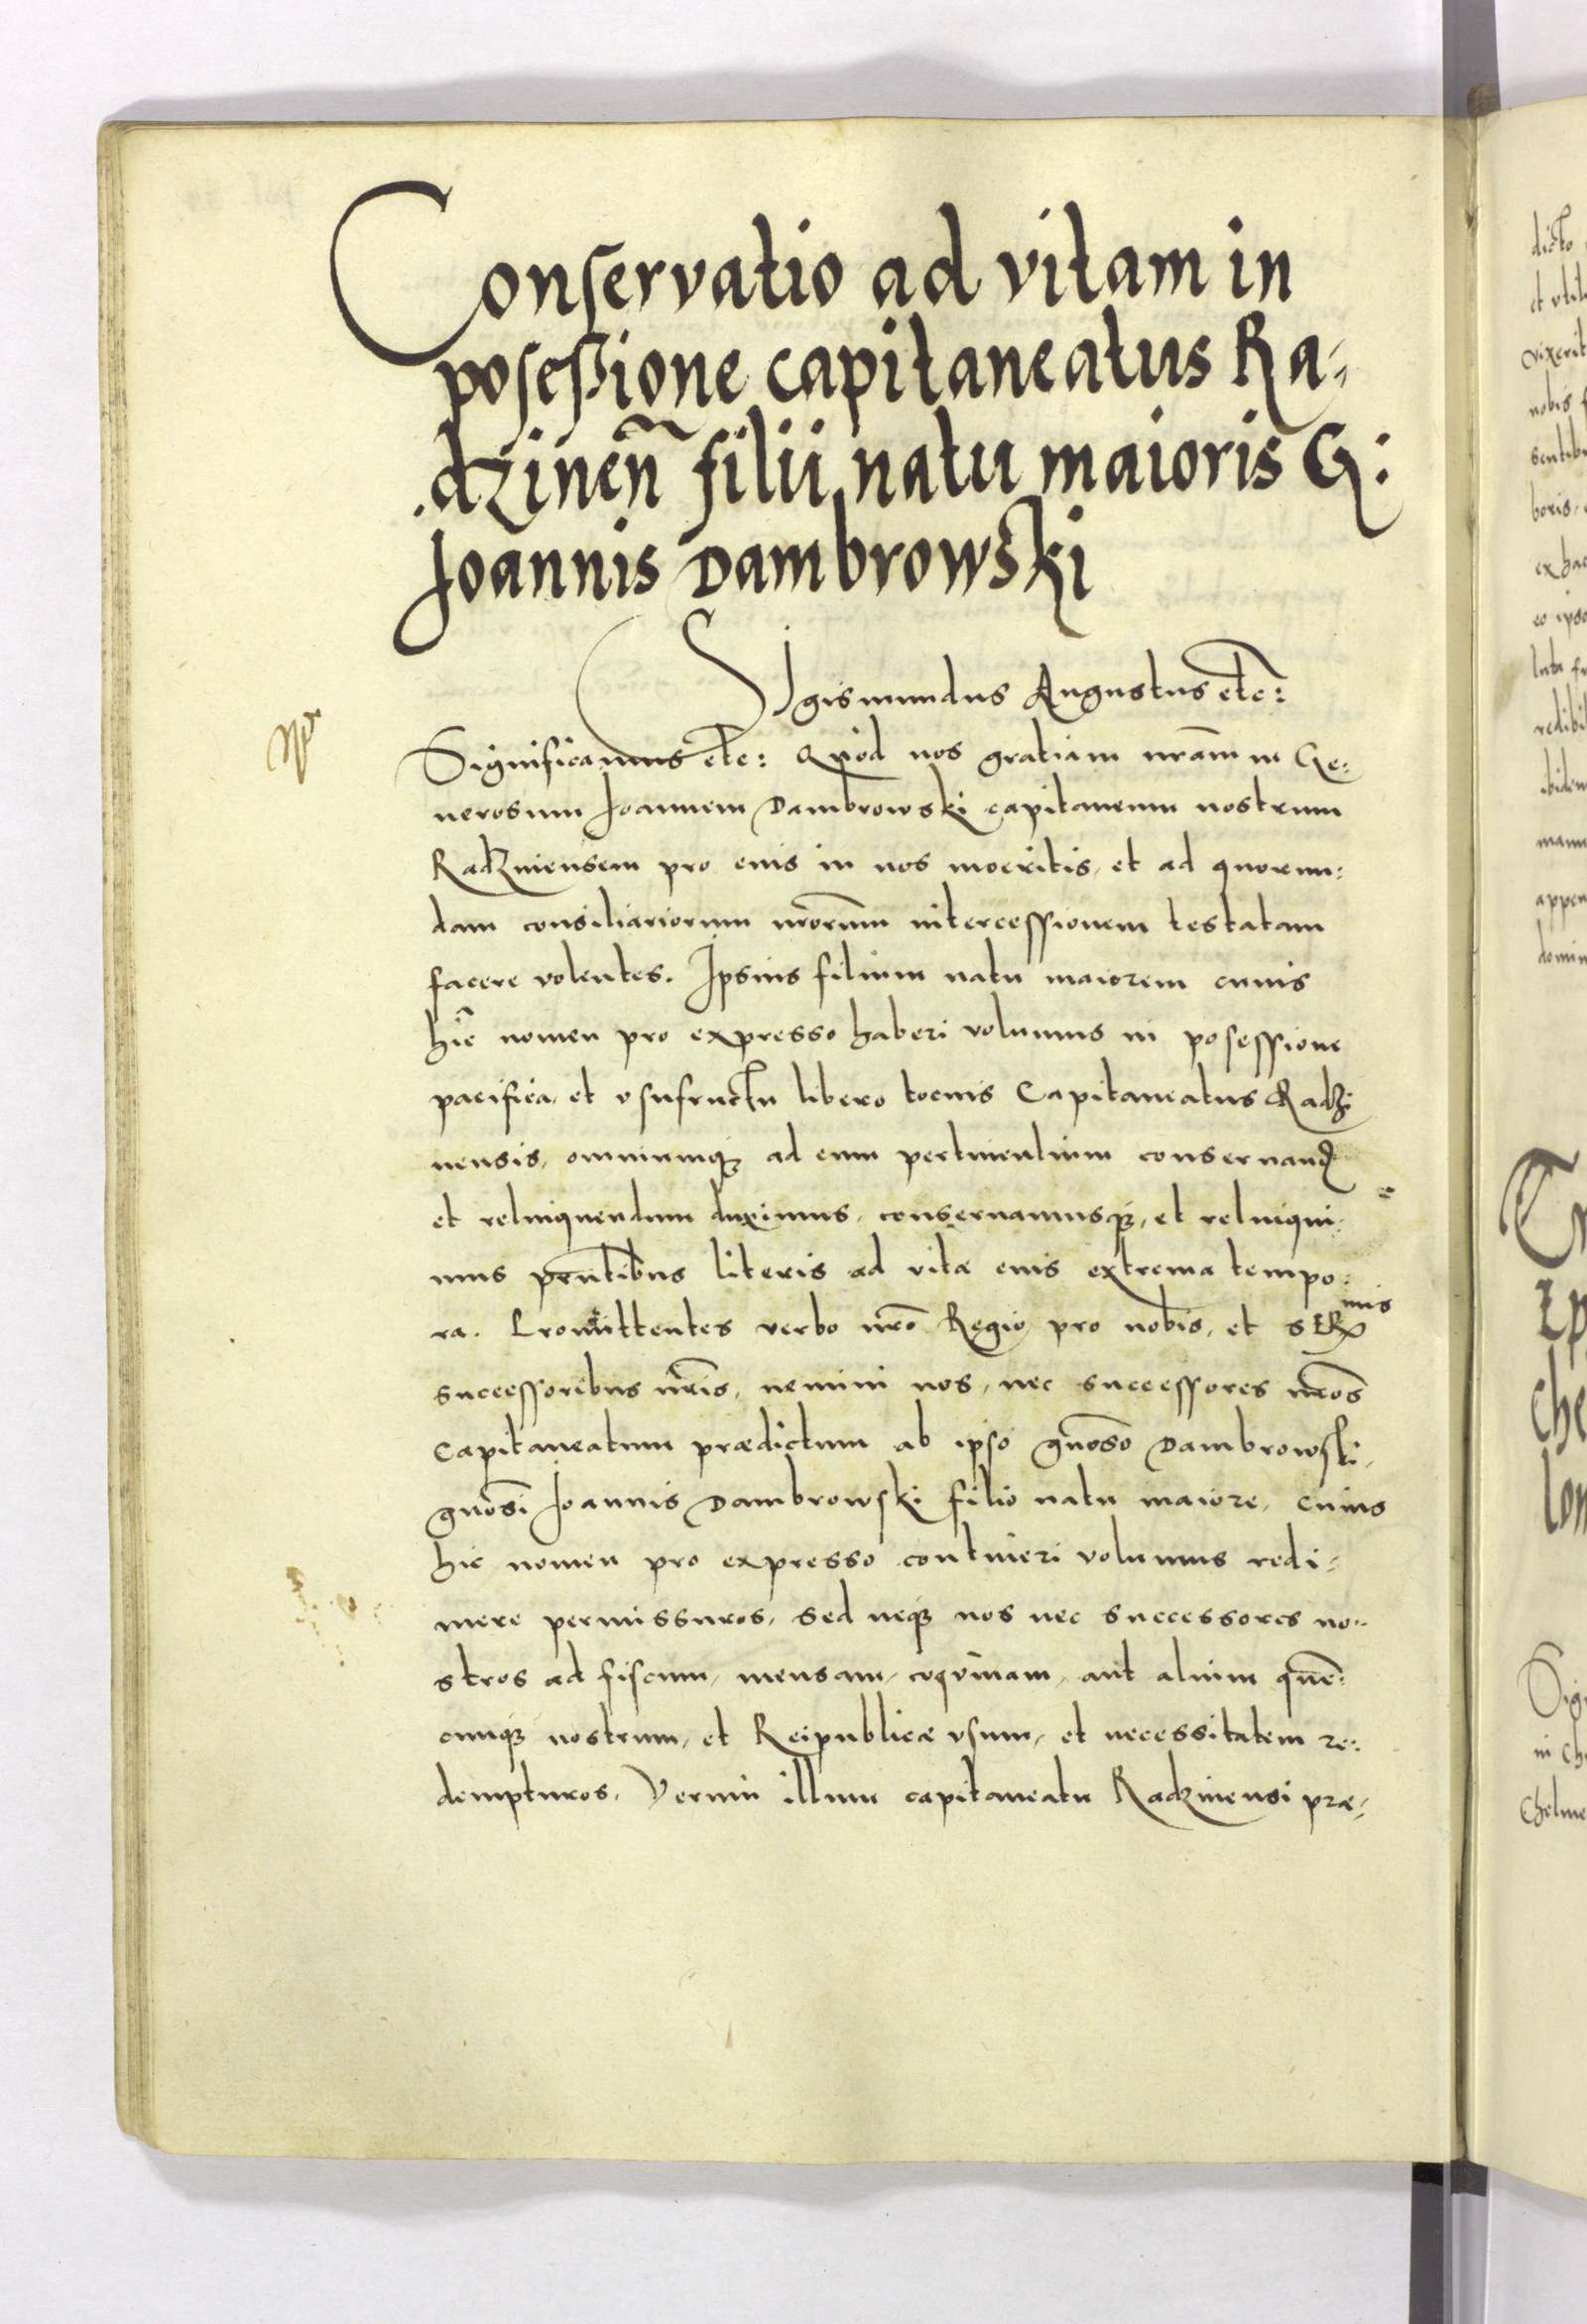 Conservatio ad vitam in
posessione capitaneatus Ra-
dzinen̄ filii natu maioris G:
Joannis Dambrowski
Sigismundus Augustus etc:
Significamus etc: Quod nos gratiam nr̄am in Ge:
nerosum Joannem Dambrowski capitaneum nostrum
Radzinensem pro eius in nos moeritis, et ad quorun:
dam consiliariorum nr̄orum intercessionem testatam
facere volentes. Ipsius filium natu maiorem cuius
hic nomen pro expresso haberi volumus in posessione
pacifica, et vsufructu libero tocius Capitaneatus Radzi
nensis, omniumq; ad eum pertinentium conseruand
et relinquendum duximus, conseruamusq;, et relinqui:
mus pr̄ntibus literis ad vitæ eius extrema tempo:
ra. Promittentes verbo nr̄o Regio pro nobis, et SER mis
successoribus nr̄is, nemini nos, nec successores nr̄os
capitaneatum prædictum ab ipso gn̄oso Dambrowski,
gn̄osi Joannis Dambrowski filio natu maiore, cuius
hic nomen pro expresso contineri volumus redi-
mere permissuros, sed neq; nos nec successores no-
stros ad fiscum, mensam, coquinam, aut alium quē:
cunq; nostrum, et Reipublicæ vsum, et necessitatem re:
dempturos, Verum illum capitaneatu Radzinensi præ-